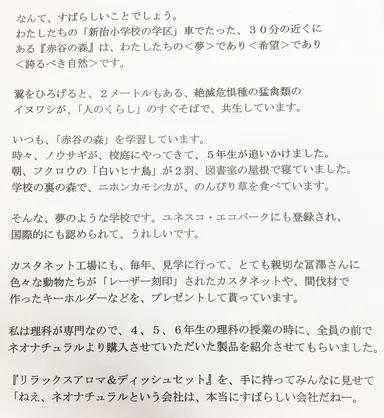 なんて、すばらしいことでしょう。
わたしたちの「新治小学校の学区」車でたった、３０分の近くに
ある『赤谷の森』は、わたしたちの＜夢＞であり＜希望＞であり
＜誇るべき自然＞です。
翼をひろげると、２メートルもある、絶滅危惧種の猛禽類の
イヌワシが、「人のくらし」のすぐそばで、共生しています。
いつも、「赤谷の森」を学習しています。
時々、ノウサギが、校庭にやってきて、５年生が追いかけました。
朝、フクロウの「白いヒナ鳥」が２羽、図書室の屋根で寝ていました。
学校の裏の森で、ニホンカモシカが、のんびり草を食べています。
そんな、夢のような学校です。ユネスコ・エコパークにも登録され、
国際的にも認められて、うれしいです。
カスタネット工場にも、毎年、見学に行って、とても親切な冨澤さんに
色々な動物たちが「レーザー刻印」されたカスタネットや、間伐材で
作ったキーホルダーなどを、プレゼントして貰っています。
私は理科が専門なので、４、５、６年生の理科の授業の時に、全員の前で
ネオナチュラルより購入させていただいた製品を紹介させてもらいました。
『リラックスアロマ＆ディッシュセット』を、手に持ってみんなに見せて
「ねえ、ネオナチュラルという会社は、本当にすばらしい会社だねー。